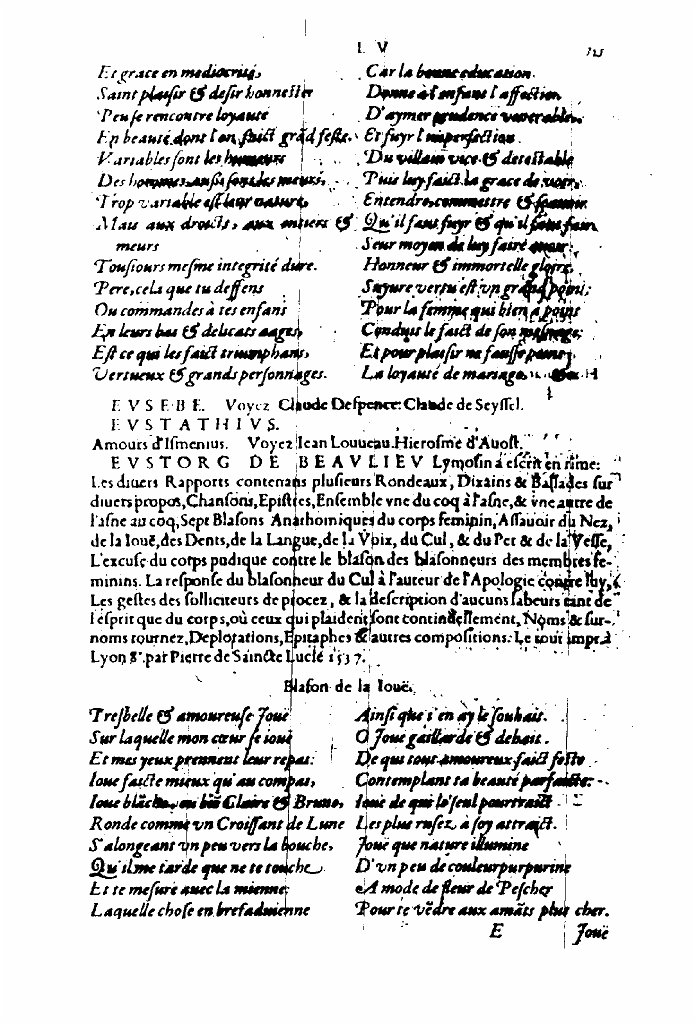 E V
Et grace en mediocrité,
Saint plaisir & desir honneste
Peu se rencontre loyauté
En beauté dont l'on faict grãd feste.
Variables sont les humeurs
Des hommes, aussi sont les meurs,
Trop variable est leur nature,
Mais aux droicts, aux entiers &
meurs
Tousiours mesme integrité dure.
Pere, cela que tu deffens
Ou commandes à tes enfans
En leurs bas & delicats aages,
Est ce qui les faict triumphans,
Vertueux & grands personnages.
Car la bonne education
Donne à l'enfant l'affection
D'aymer prudence venerable,
Et fuyr l'imperfection
Du villain vice & detestable
Puis luy faict la grace de voir,
Entendre, commettre & sçavoir
Qu'il faut fuyr & qu'il faut
Seur moyen de luy faire avoir
Honneur & immortelle gloire,
Suyure vertu est vn grand point;
Pour la femme qui bien a point
Conduis le faict de son mesnage;
Et pour plaisir ne fausse point
La loyauté de mariage.
E V S E B E. Voyez Claude Despence: Claude de Seyssel.
E V S T A T H I V S.
Amours d'Ismenius. Voyez Iean Louueau. Hierosme d'Auost.
E V S T O R G D E B E A V L I E V Lymosin a escrit en rime:
Les diuers Rapports contenans plusieurs Rondeaux, Dixains & Ballades sur
diuers propos, Chansons, Epistres, Ensemble vne du coq à l'asne, & vne autre de
l'asne au coq, Sept Blasons Anathomiques du corps feminin, Assauoir du Nez,
de la Iouë, des Dents, de la Langue, de la Voix, du Cul, & du Pet & de la Vesse,
L'excuse du corps pudique contre le blason des blasonneurs des membres fe-
minins. La responsе du blasonneur du Cul à l'auteur de l'Apologie contre luy,
Les gestes des solliciteurs de procez, & la description d'aucuns labeurs tant de
l'esprit que du corps, où ceux qui plaident sont continuellement, Noms & sur-
noms tournez, Deplorations, Epitaphes & autres compositions. Le tout impr. à
Lyon 8°. par Pierre de Saincte Lucie 1537.
Blason de la Iouë.
Tresbelle & amoureuse Iouë
Sur laquelle mon cœur se iouë
Et mes yeux prennent leur repas:
Iouë faicte mieux qu'au compas,
Iouë blãche, ou biẽ Claire & Brune,
Ronde comme vn Croissant de Lune
S'alongeant vn peu vers la bouche,
Qu'il me tarde que ne te touche
Et te mesure auec la mienne;
Laquelle chose en bref aduienne
Ainsi que i'en ay le souhait.
O Iouë gaillarde & dehait.
De qui tout amoureux faict feste
Contemplant ta beauté parfaicte:
Iouë de qui le seul pourtraict
Les plus rusez à soy attraict.
Iouë que nature illumine
D'vn peu de couleur purpurine
A mode de fleur de Pescher
Pour te vẽdre aux amãts plus cher.
E Iouë